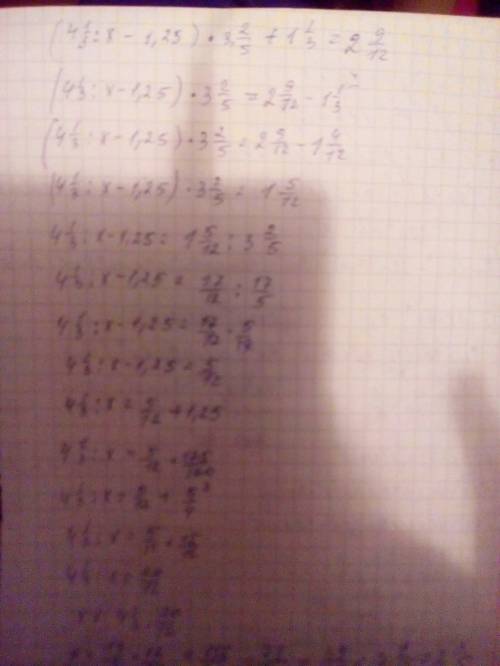 (4 1/3 : x - 1,25) · 3 2/5 + 1 1/3 = 2 9/12
(4 1/3 : x - 1,25) · 3 2/5 = 2 9/12 - 1 1/3
(4 1/3 : x - 1,25) · 3 2/5 = 2 9/12 - 1 4/12
(4 1/3 : x - 1,25) · 3 2/5 = 1 5/12
4 1/3 : x - 1,25 = 1 5/12 : 3 2/5
4 1/3 : x - 1,25 = 17/12 : 17/5
4 1/3 : x - 1,25 = 17/12 · 5/17
4 1/3 : x - 1,25 = 5/12
4 1/3 : x = 5/12 + 1,25
4 1/3 : x = 5/12 + 125/100
4 1/3 : x = 5/12 + 5/4
4 1/3 : x = 5/12 + 15/12
4 1/3 : x = 20/12
x = 4 1/3 : 20/12